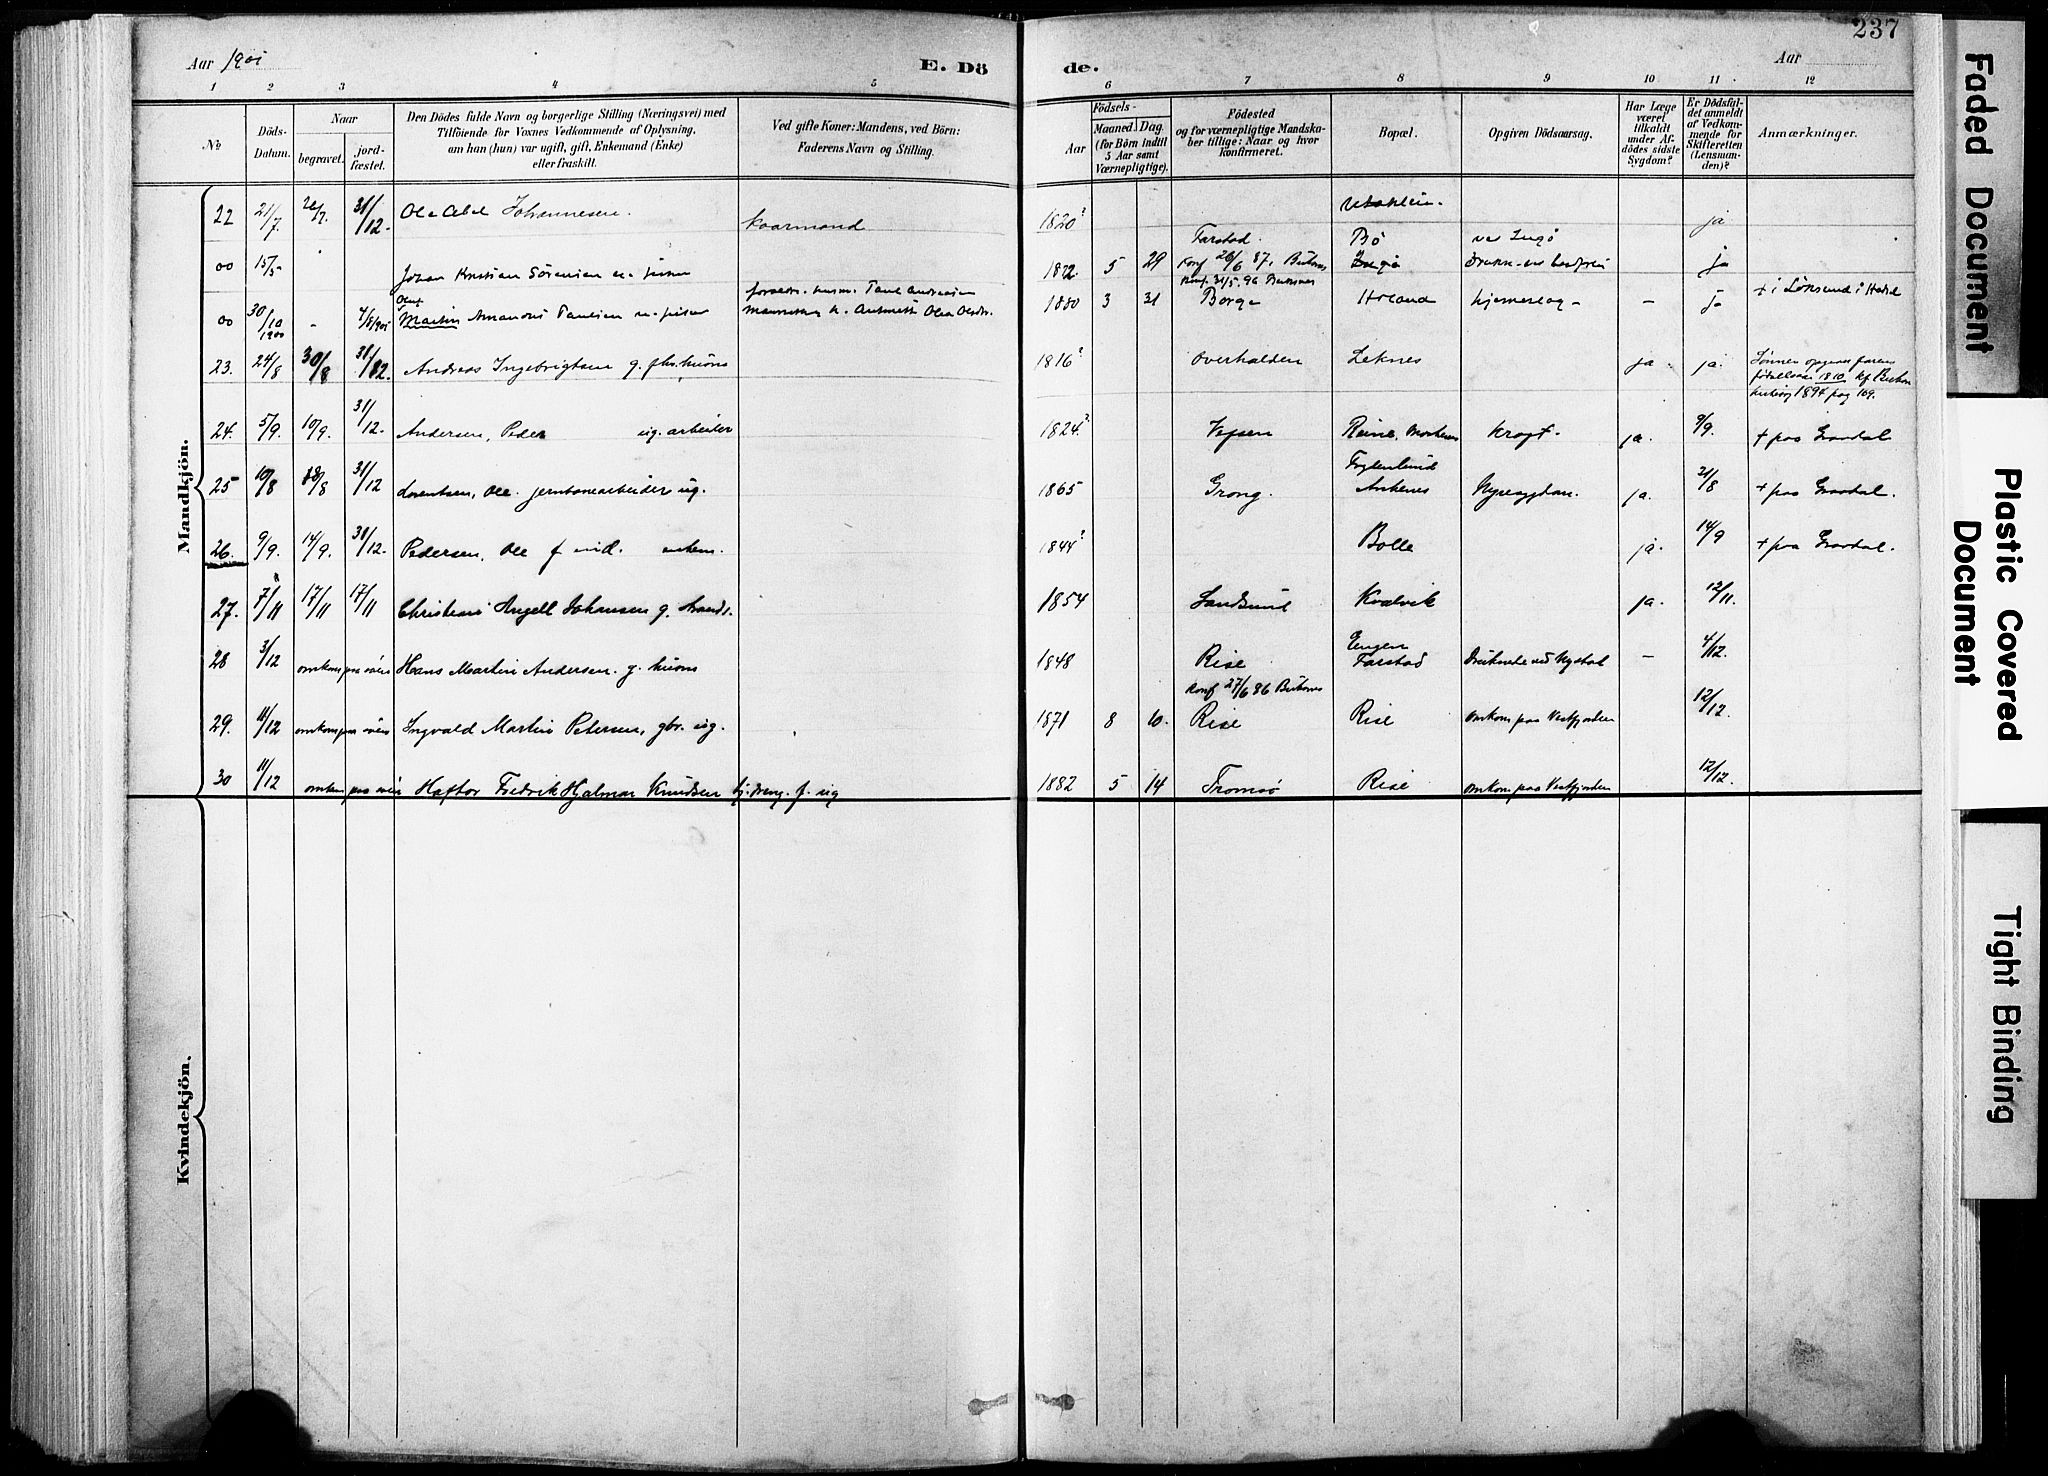 237
Aar 1901
E. Dö
de.
Aar
1 2 3 4 5
6 7 8 9 10 11 12
No
Döds-Datum.
Naar
begravet.
jord-fæstet.
Den Dödes fulde Navn og borgerlige Stilling (Næringsvei) med
Tilföiende for Voxnes Vedkommende af Oplysning,
om han (hun) var ugift, gift, Enkemand (Enke)
eller fraskilt.
Ved gifte Koner: Mandens, ved Börn:
Faderens Navn og Stilling.
Födsels-
Aar
Maaned. Dag.
(for Börn indtil
5 Aar samt
Værnepligtige).
Födested
og for værnepligtige Mandska-
ber tillige: Naar og hvor
Konfirmeret.
Bopæl.
Opgiven Dödsaarsag.
Har Læge
været
tilkaldt
under Af-
dödes sidste
Sygdom?
Er Dödsfal-
det anmeldt
af Vedkom-
mende for
Skifteretten
(Lensman-
den)?
Anmærkninger.
Mandkjön.
22 21/7 31/12 Ole Abel Johannesen. kaarmand 1820? ja
00 15/5 Johan Kristian Sörensen 5 29 Farstad. Konf 26/6 87. Buksnes Bö ja
00 30/10 1900 - 4/8 1901 Olaf Martin Amandus Paulsen 1880 3 31 Konf. 31/5. 96 Buksnes Borge Holand hjemeslag - - ja + i Löksund i Hadsel
23. 24/8 30/8 31/12. Andreas Ingebrigtsen g. 1816? Overhalden Leknes ja ja. Sönnen opgiver farens födselsaar 1810 1894 pag 109.
24. 5/9. 10/9. 31/12. Andersen, Peder ug. arbeider 1824? Vefsen Reine, Kræft. ja. 9/9. + paa Gravdal
25 10/8 18/8 31/12 Lorentsen, Ole. jernbanearbeider ug. 1865 Grong. Ankenes Nyresygdom. ja. 21/8 + paa Gravdal.
26. 9/9. 14/9. 31/12. Pedersen, Ole f. ind. enkem. 1844? Bolle ja. 14/9 + paa Gravdal.
27. 7/11 17/11 17/11 Christian Angell Johansen g. 1854 Sandsund Kvalvik ja. 12/11.
28 3/12 omkom paa söen Hans Martin Andersen. g. huusm 1848 Rise Engen Farstad Druknede ved - 4/12.
29. 11/12 omkom paa söen Ingvald Martin Petersen, gbr. ug. 1871 8 10. Konf 27/6 86 Buksnes Rise Rise omkom paa Vestfjorden 12/12.
30 11/12 omkom paa söen Haftor Fredrik Hjalmar Knudsen tj. dreng. f. ug 1882 5 14 Tromsö Rise omkom paa Vestfjorden 12/12.
Kvindekjön.
Faded Document
Plastic Covered
Document
Tight Binding